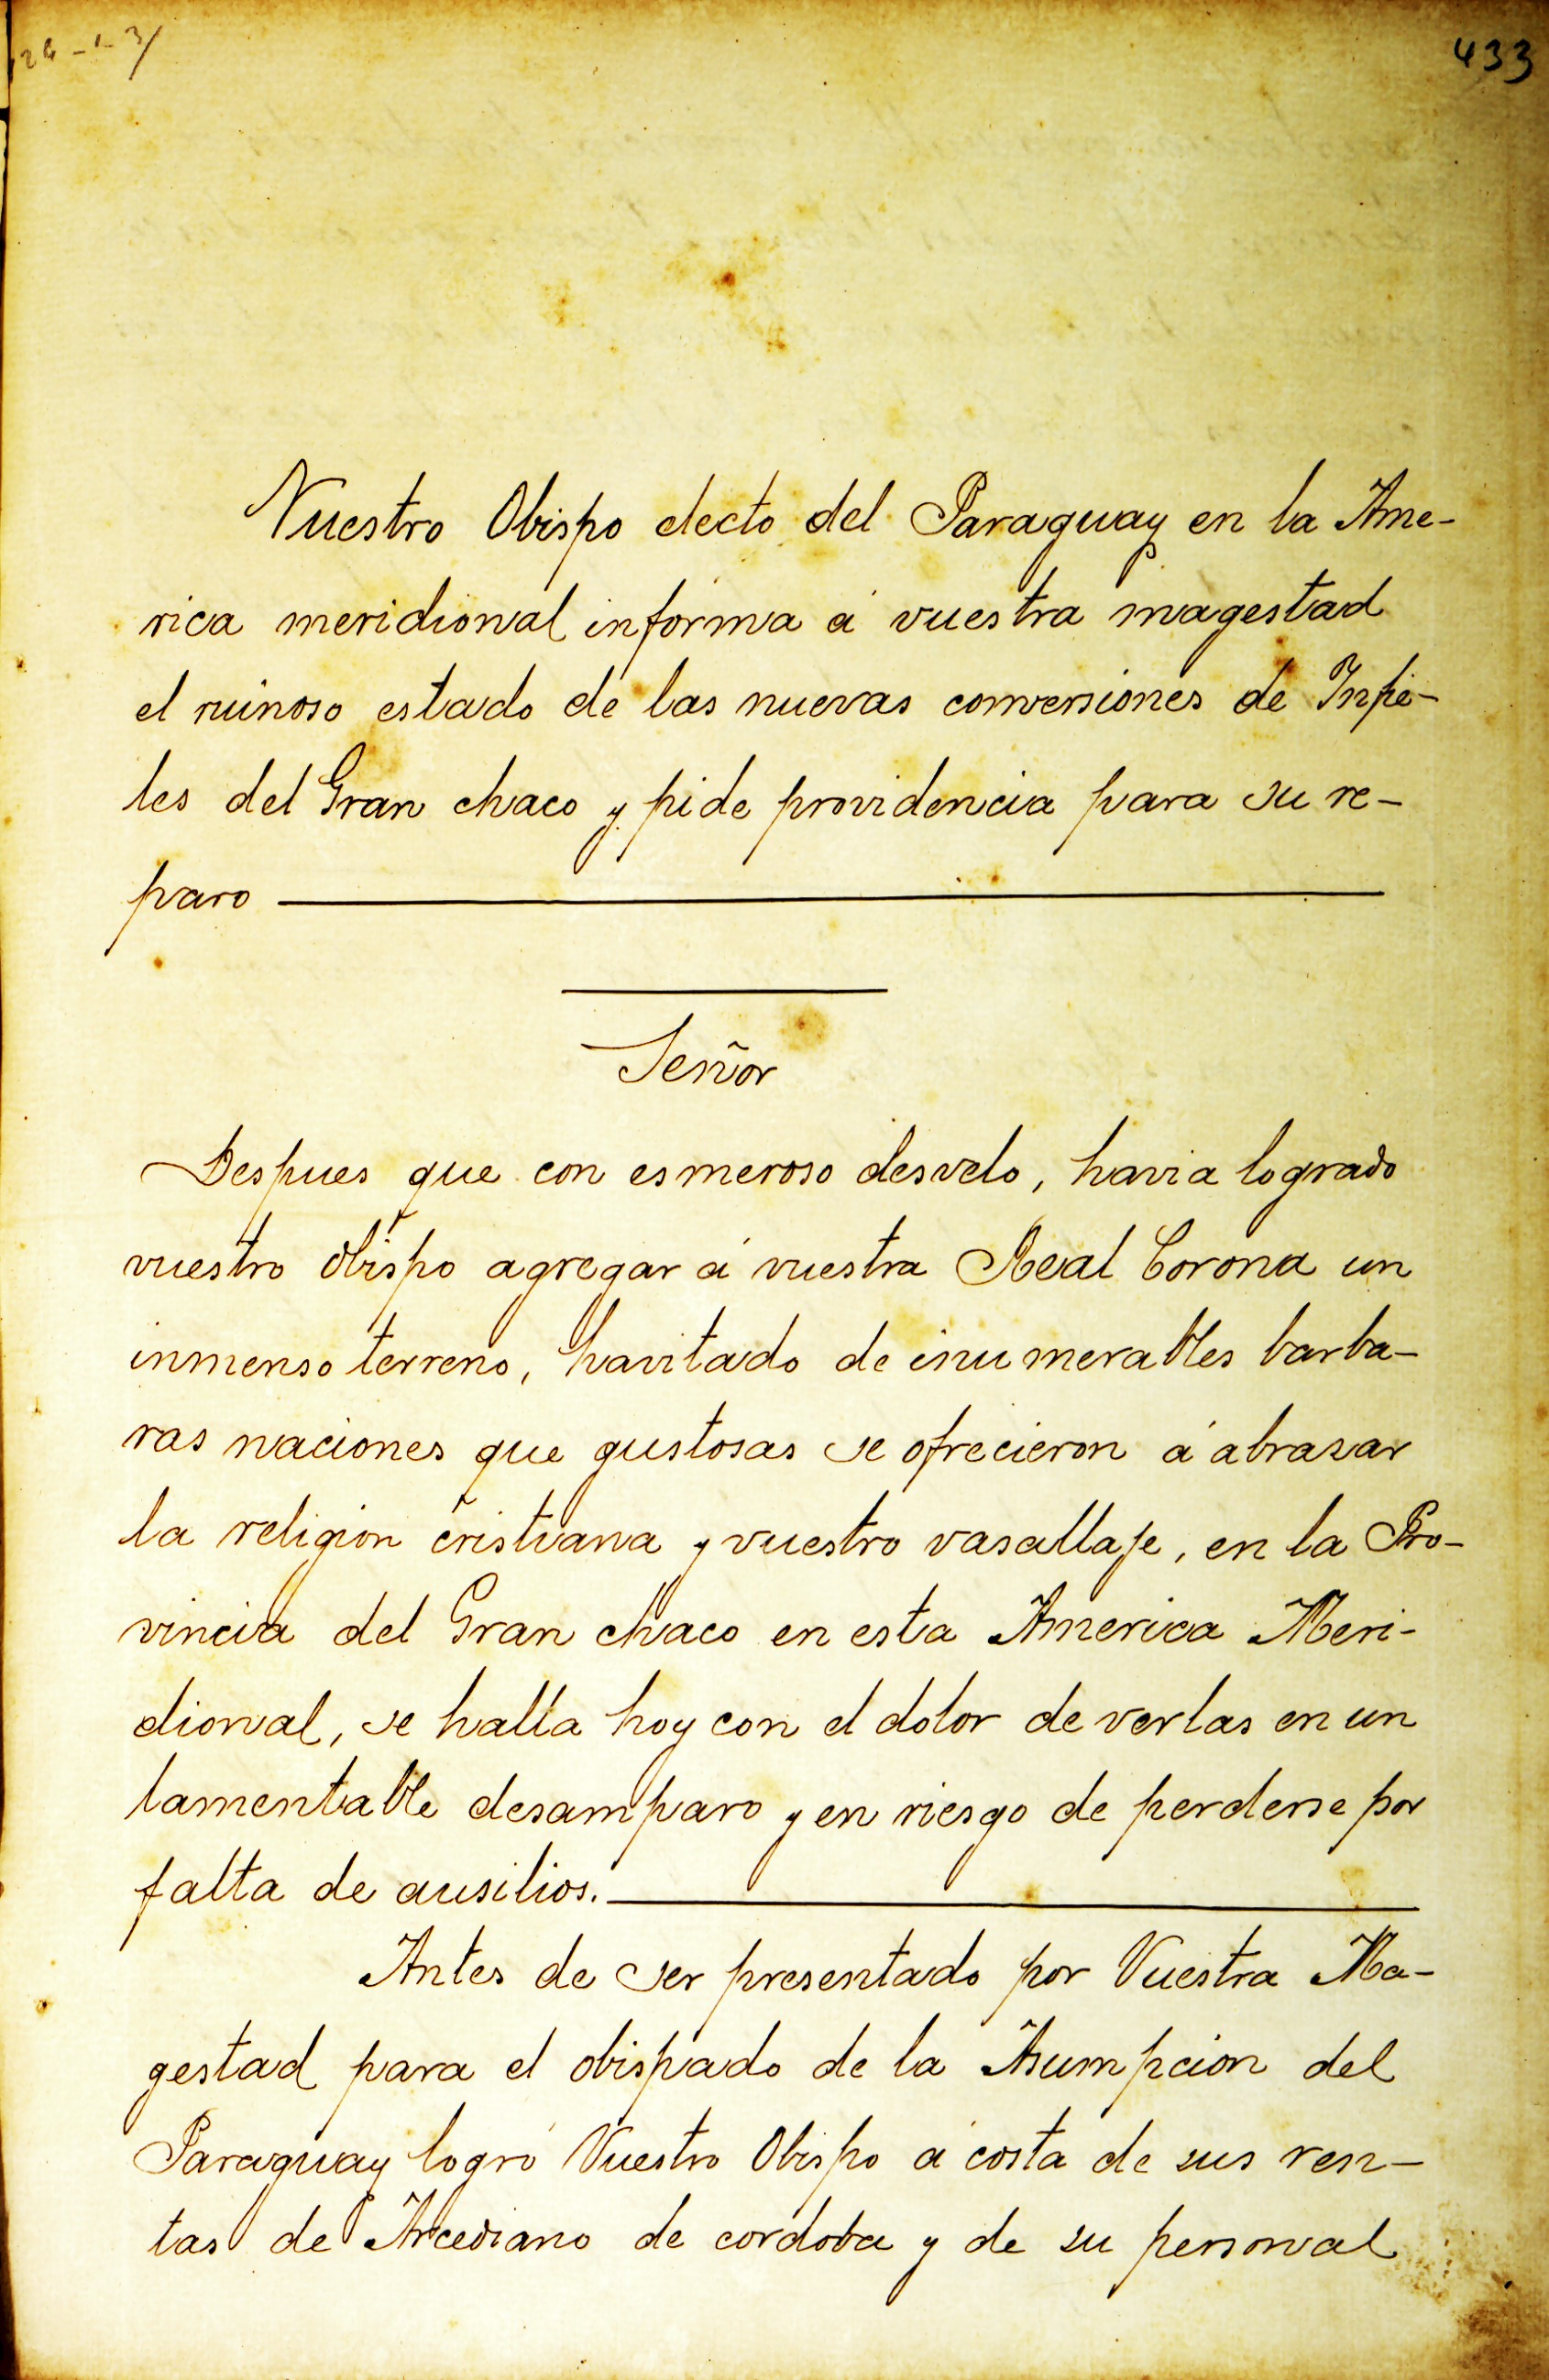 26-1-3/
433
Nuestro Obispo electo del Paraguay en la Ame-
rica meridional informa á vuestra magestad
el ruinoso estado de las nuevas conversiones de Infie-
les del Gran chaco y pide providencia para su re-
paro
Señor
Despues que con esmeroso desvelo, havia logrado
vuestro obispo agregar á vuestra Real Corona un
inmenso terreno, havitado de inumerables barba-
ras naciones que gustosas se ofrecieron á abrasar
la religion cristiana y vuestro vasallaje, en la Pro-
vincia del Gran chaco en esta America Meri-
dional, se halla hoy con el dolor de verlas en un
lamentable desamparo y en riesgo de perderse por
falta de ausilios.
Antes de ser presentado por Vuestra Ma-
gestad para el obispado de la Asumpcion del
Paraguay logró Vuestro Obispo á costa de sus ren-
tas de Arcediano de cordoba y de su personal